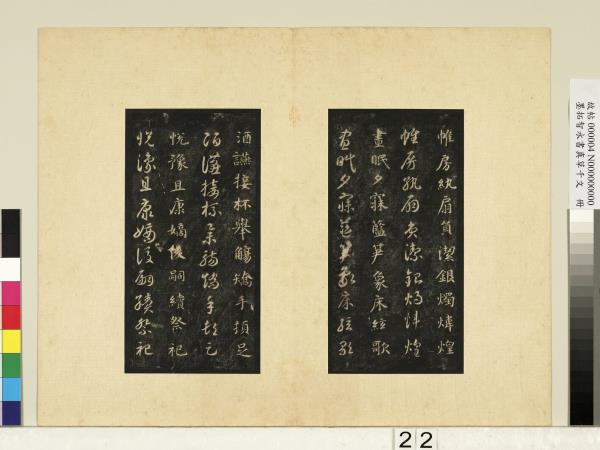 帷房紈扇員潔銀燭煒煌
帷房紈扇員潔銀燭煒煌
晝眠夕寐籃笋象床絃歌
晝眠夕寐籃笋象床絃歌
酒讌接杯舉觴矯手頓足
酒讌接杯舉觴矯手頓足
悅豫且康嫡後嗣續祭祀
悅豫且康嫡後嗣續祭祀
故帖 000004 N000000000
墨拓智永書真草千文 冊
22